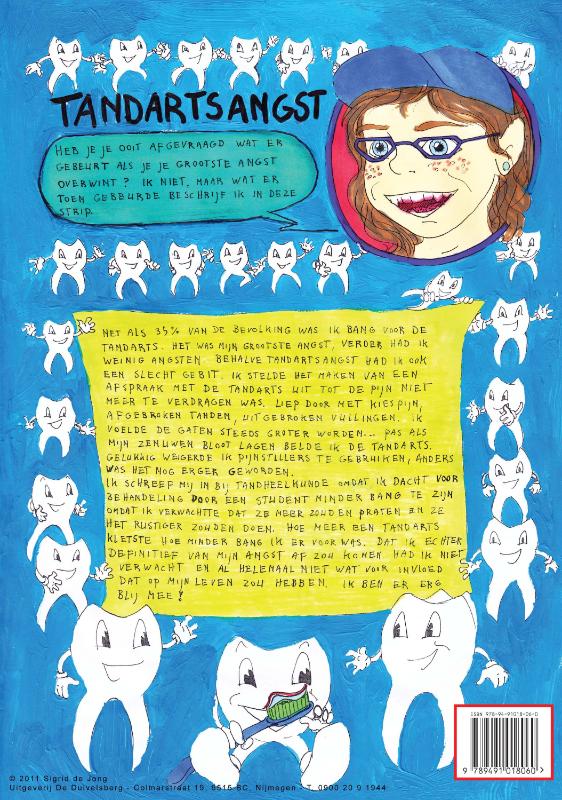 TANDARTSANGST
HEB JE JE OOIT AFGEVRAAGD WAT ER
GEBEURT ALS JE JE GROOTSTE ANGST
OVERWINT? IK NIET, MAAR WAT ER
TOEN GEBEURDE BESCHRIJF IK IN DEZE
STRIP.
NET ALS 35% VAN DE BEVOLKING WAS IK BANG VOOR DE
TANDARTS. HET WAS MIJN GROOTSTE ANGST, VERDER HAD IK
WEINIG ANGSTEN. BEHALVE TANDARTSANGST HAD IK OOK
EEN SLECHT GEBIT. IK STELDE HET MAKEN VAN EEN
AFSPRAAK MET DE TANDARTS UIT TOT DE PIJN NIET
MEER TE VERDRAGEN WAS. LIEP DOOR MET KIESPIJN,
AFGEBROKEN TANDEN, UITGEBROKEN VULLINGEN. IK
VOELDE DE GATEN STEEDS GROTER WORDEN... PAS ALS
MIJN ZENUWEN BLOOT LAGEN BELDE IK DE TANDARTS.
GELUKKIG WEIGERDE IK PIJNSTILLERS TE GEBRUIKEN, ANDERS
WAS HET NOG ERGER GEWORDEN.
IK SCHREEF MIJ IN BIJ TANDHEELKUNDE OMDAT IK DACHT VOOR
BEHANDELING DOOR EEN STUDENT MINDER BANG TE ZIJN
OMDAT IK VERWACHTTE DAT ZE MEER ZOUDEN PRATEN EN ZE
HET RUSTIGER ZOUDEN DOEN. HOE MEER EEN TANDARTS
KLETSTE HOE MINDER BANG IK ER VOOR WAS. DAT IK ECHTER
DEFINITIEF VAN MIJN ANGST AF ZOU KOMEN HAD IK NIET
VERWACHT EN AL HELEMAAL NIET WAT VOOR INVLOED
DAT OP MIJN LEVEN ZOU HEBBEN. IK BEN ER ERG
BLIJ MEE!
ISBN 978-94-91018-06-0
9 789491 018060 >
© 2011 Sigrid de Jong
Uitgeverij De Duivelsberg - Colmarstraat 19, 6515 BC, Nijmegen - T. 0900 20 9 1944